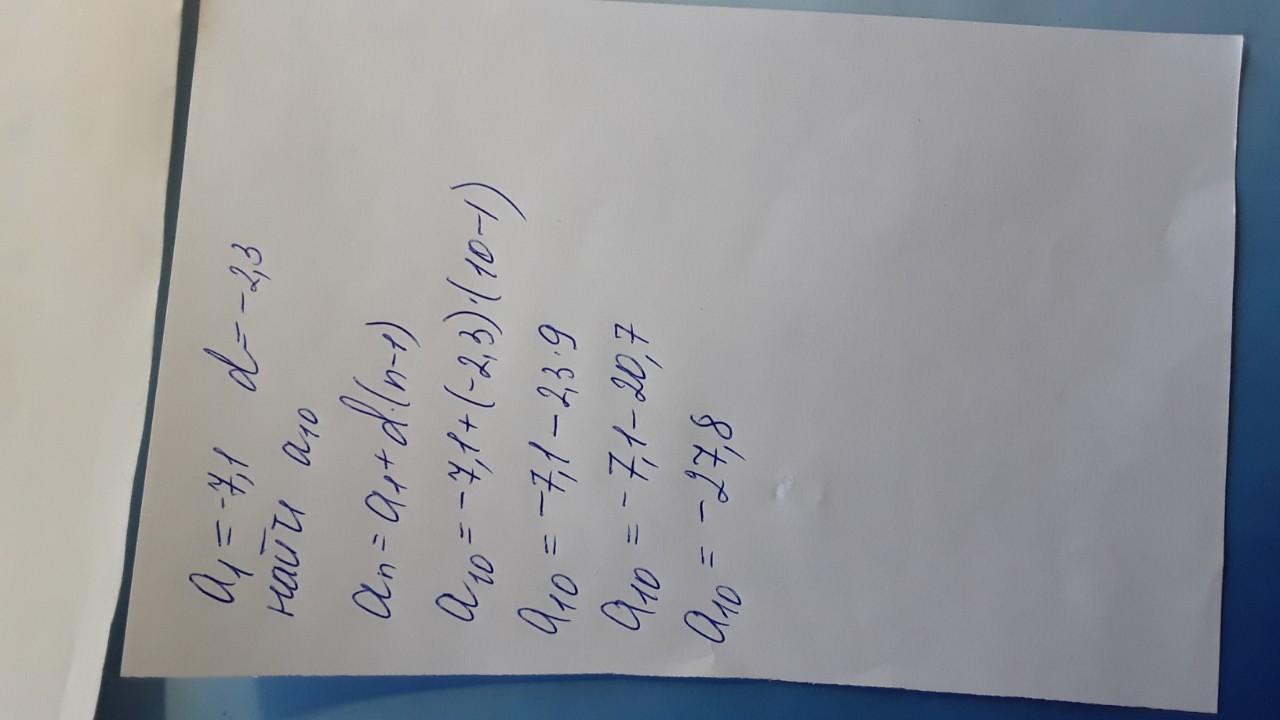 a₁ = -7,1   d = -2,3
найти a₁₀
aₙ = a₁ + d·(n-1)
a₁₀ = -7,1 + (-2,3)·(10-1)
a₁₀ = -7,1 - 2,3·9
a₁₀ = -7,1 - 20,7
a₁₀ = -27,8